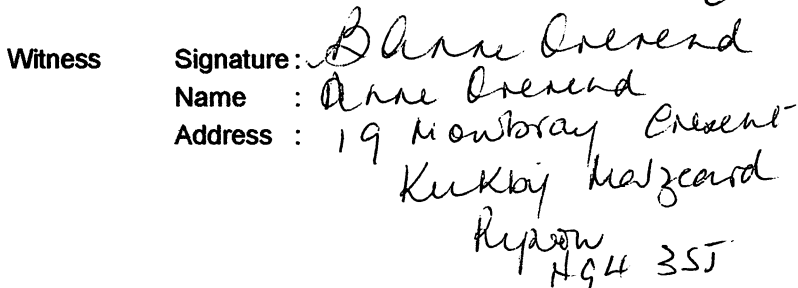 Witness Signature: B Anne Overend
Name : Anne Overend
Address : 19 Mowbray Crescent
Kirkby Malzeard
Ripon
HG4 3SJ